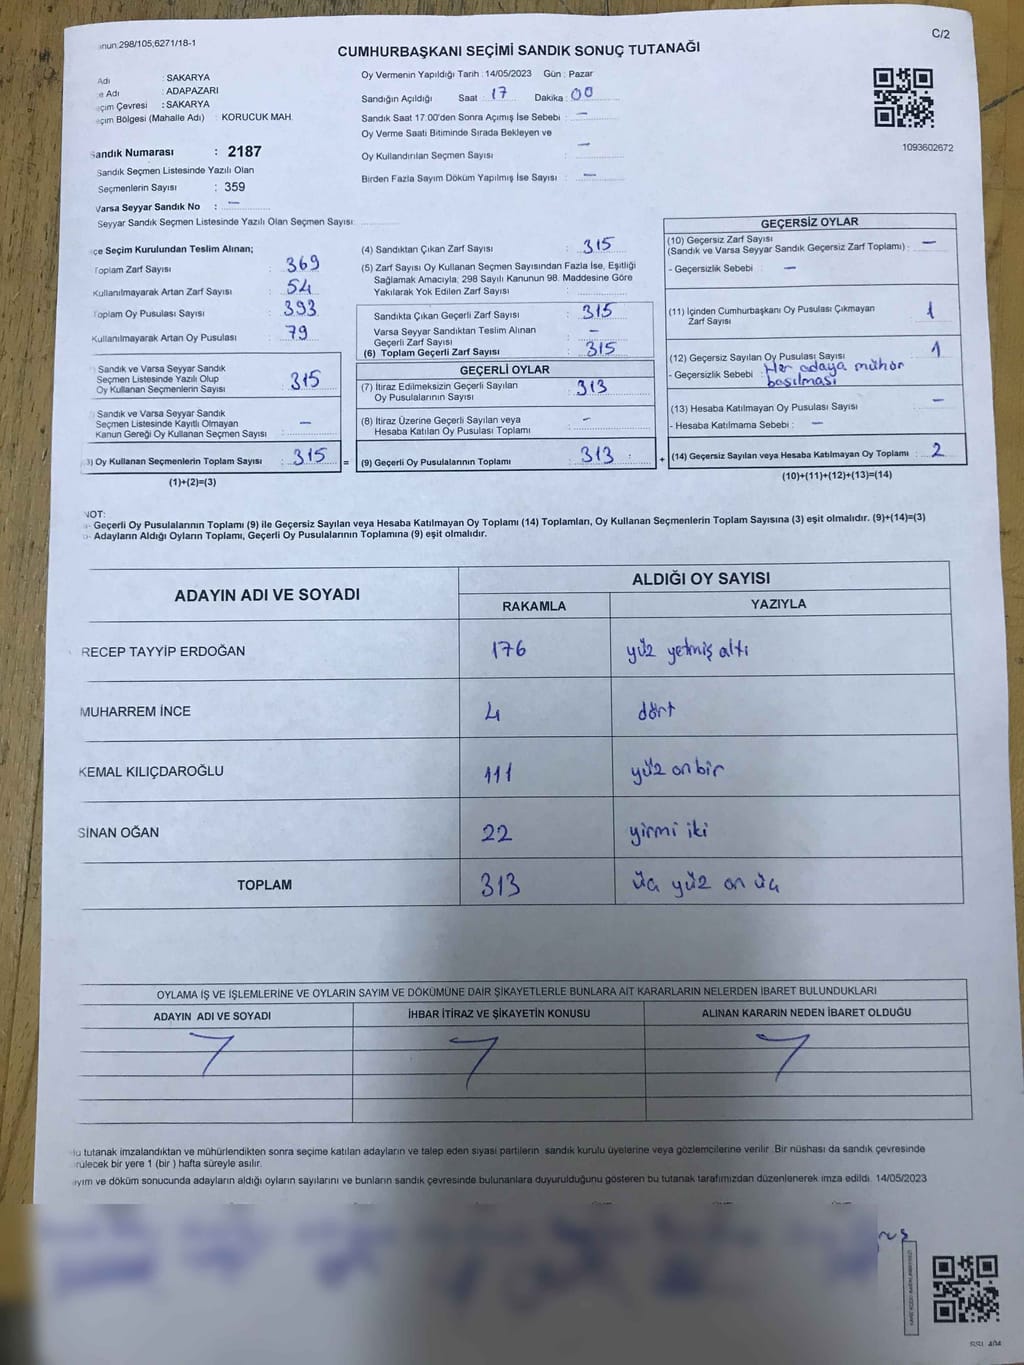 nun:298/105;6271/18-1
C/2
CUMHURBAŞKANI SEÇİMİ SANDIK SONUÇ TUTANAĞI
Adı : SAKARYA
e Adı : ADAPAZARI
çim Çevresi : SAKARYA
çim Bölgesi (Mahalle Adı) : KORUCUK MAH.
Sandık Numarası : 2187
Sandık Seçmen Listesinde Yazılı Olan
Seçmenlerin Sayısı : 359
Varsa Seyyar Sandık No : —
Seyyar Sandık Seçmen Listesinde Yazılı Olan Seçmen Sayısı:
Oy Vermenin Yapıldığı Tarih : 14/05/2023 Gün : Pazar
Sandığın Açıldığı Saat : 17 Dakika : 00
Sandık Saat 17.00'den Sonra Açımış İse Sebebi : —
Oy Verme Saati Bitiminde Sırada Bekleyen ve
Oy Kullandırılan Seçmen Sayısı : —
Birden Fazla Sayım Döküm Yapılmış İse Sayısı : —
1093602672
çe Seçim Kurulundan Teslim Alınan;
Toplam Zarf Sayısı : 369
Kullanılmayarak Artan Zarf Sayısı : 54
Toplam Oy Pusulası Sayısı : 393
Kullanılmayarak Artan Oy Pusulası : 79
) Sandık ve Varsa Seyyar Sandık
Seçmen Listesinde Yazılı Olup
Oy Kullanan Seçmenlerin Sayısı : 315
) Sandık ve Varsa Seyyar Sandık
Seçmen Listesinde Kayıtlı Olmayan
Kanun Gereği Oy Kullanan Seçmen Sayısı : —
3) Oy Kullanan Seçmenlerin Toplam Sayısı : 315 =
(1)+(2)=(3)
(4) Sandıktan Çıkan Zarf Sayısı : 315
(5) Zarf Sayısı Oy Kullanan Seçmen Sayısından Fazla İse, Eşitliği
Sağlamak Amacıyla; 298 Sayılı Kanunun 98. Maddesine Göre
Yakılarak Yok Edilen Zarf Sayısı :
Sandıkta Çıkan Geçerli Zarf Sayısı : 315
Varsa Seyyar Sandıktan Teslim Alınan
Geçerli Zarf Sayısı : —
(6) Toplam Geçerli Zarf Sayısı : 315
GEÇERLİ OYLAR
(7) İtiraz Edilmeksizin Geçerli Sayılan
Oy Pusulalarının Sayısı : 313
(8) İtiraz Üzerine Geçerli Sayılan veya
Hesaba Katılan Oy Pusulası Toplamı : —
(9) Geçerli Oy Pusulalarının Toplamı : 313 +
GEÇERSİZ OYLAR
(10) Geçersiz Zarf Sayısı
(Sandık ve Varsa Seyyar Sandık Geçersiz Zarf Toplamı) : —
- Geçersizlik Sebebi : —
(11) İçinden Cumhurbaşkanı Oy Pusulası Çıkmayan
Zarf Sayısı : 1
(12) Geçersiz Sayılan Oy Pusulası Sayısı : 1
- Geçersizlik Sebebi : Her adaya mühür
basılması
(13) Hesaba Katılmayan Oy Pusulası Sayısı : —
- Hesaba Katılmama Sebebi : —
(14) Geçersiz Sayılan veya Hesaba Katılmayan Oy Toplamı : 2
(10)+(11)+(12)+(13)=(14)
NOT:
- Geçerli Oy Pusulalarının Toplamı (9) ile Geçersiz Sayılan veya Hesaba Katılmayan Oy Toplamı (14) Toplamları, Oy Kullanan Seçmenlerin Toplam Sayısına (3) eşit olmalıdır. (9)+(14)=(3)
- Adayların Aldığı Oyların Toplamı, Geçerli Oy Pusulalarının Toplamına (9) eşit olmalıdır.
ADAYIN ADI VE SOYADI ALDIĞI OY SAYISI
RAKAMLA YAZIYLA
RECEP TAYYİP ERDOĞAN 176 yüz yetmiş altı
MUHARREM İNCE 4 dört
KEMAL KILIÇDAROĞLU 111 yüz on bir
SİNAN OĞAN 22 yirmi iki
TOPLAM 313 üç yüz on üç
OYLAMA İŞ VE İŞLEMLERİNE VE OYLARIN SAYIM VE DÖKÜMÜNE DAİR ŞİKAYETLERLE BUNLARA AİT KARARLARIN NELERDEN İBARET BULUNDUKLARI
ADAYIN ADI VE SOYADI İHBAR İTİRAZ VE ŞİKAYETİN KONUSU ALINAN KARARIN NEDEN İBARET OLDUĞU
u tutanak imzalandıktan ve mühürlendikten sonra seçime katılan adayların ve talep eden siyasi partilerin sandık kurulu üyelerine veya gözlemcilerine verilir. Bir nüshası da sandık çevresinde
rülecek bir yere 1 (bir ) hafta süreyle asılır.
ayım ve döküm sonucunda adayların aldığı oyların sayılarını ve bunların sandık çevresinde bulunanlara duyurulduğunu gösteren bu tutanak tarafımızdan düzenlenerek imza edildi. 14/05/2023